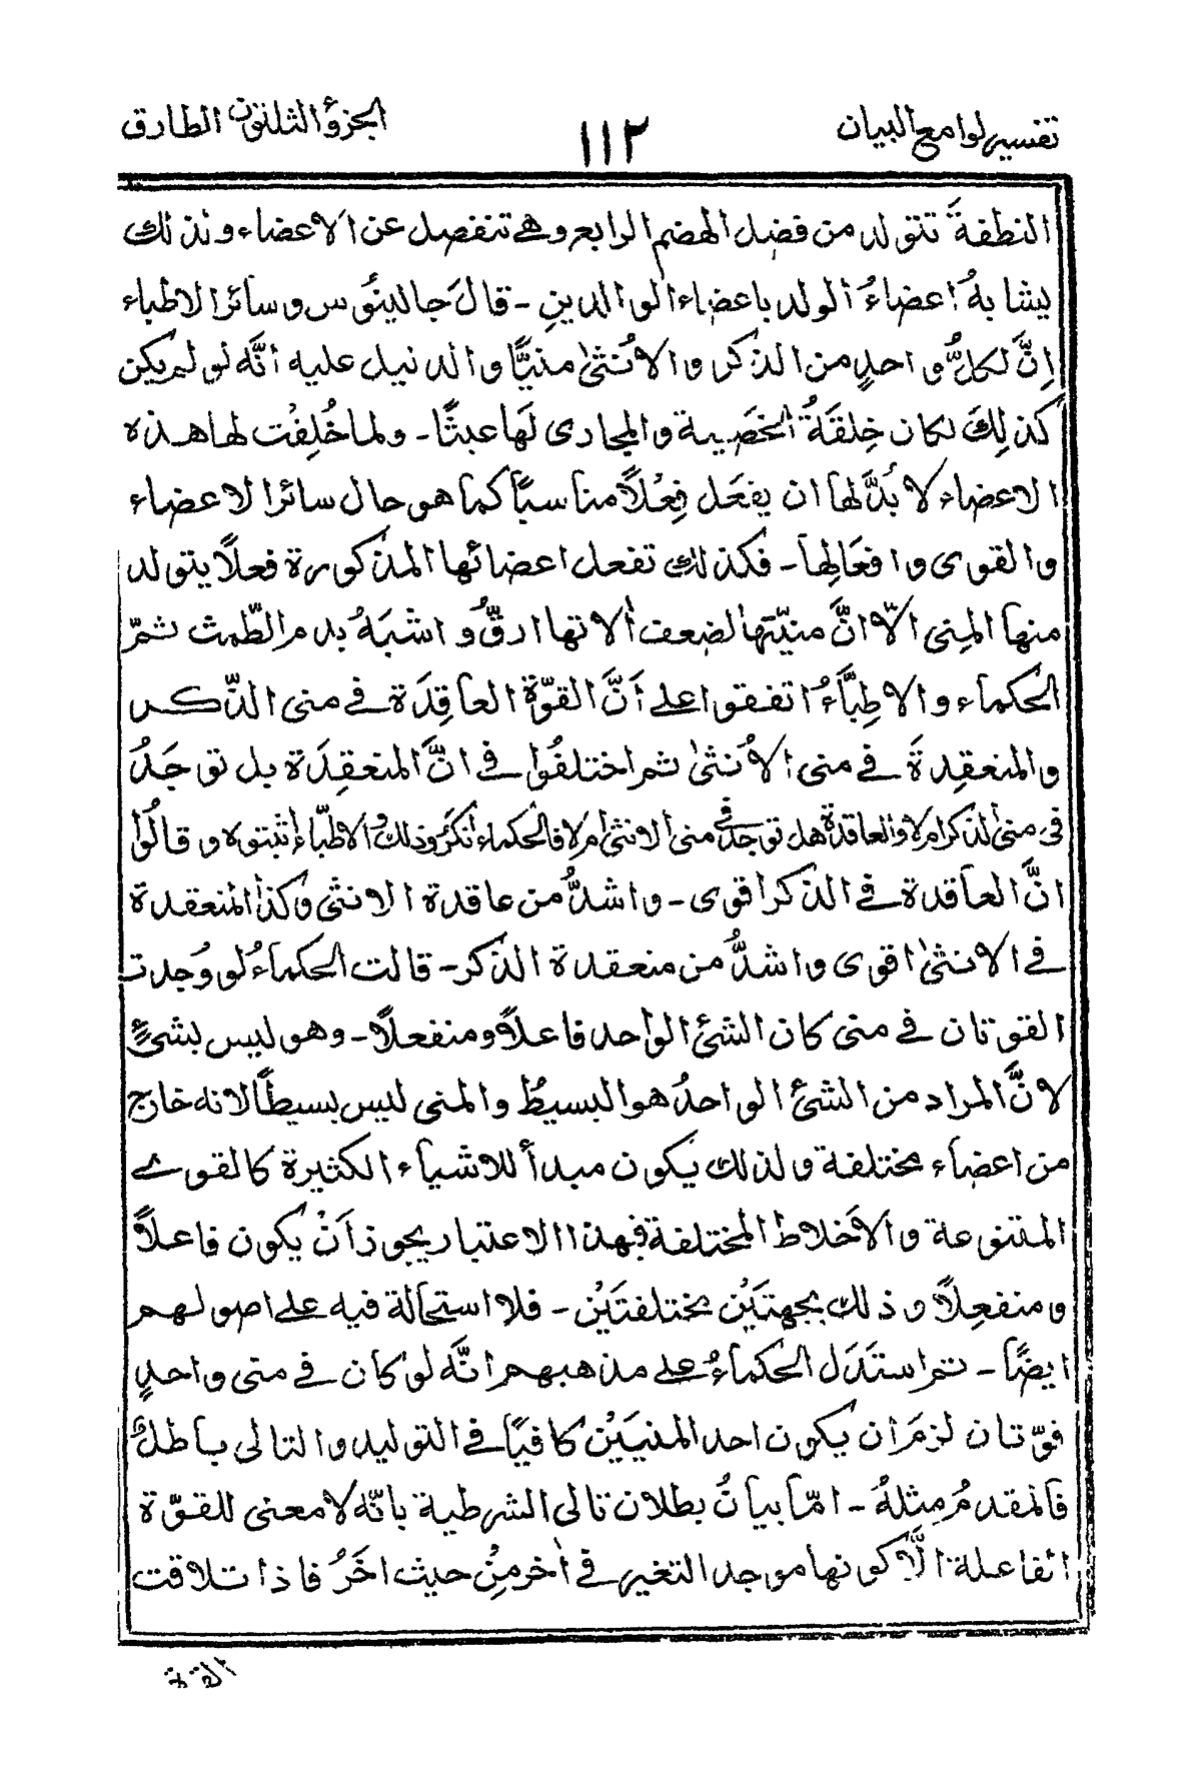 تفسير لوامع البيان
١١٢
الجزؤ الثلثون الطارق
النطفةَ تتولد من فضل الهضم الرابع وهي تنفصل عن الاعضاء ولذلك
يشابهُ اعضاءُ الولد باعضاء الوالدينِ - قالَ جالينُوس وسائر الاطباء
اِنَّ لكلِّ واحدٍ من الذكر والاُنثىٰ منيًّا والدليل عليه انَّه لو لم يكن
كذلِكَ لكان خِلقَةُ الخصية والمجارى لَها عبثًا - ولما خُلِقْت لها هذه
الاعضاء لا بُدَّ لها ان يفعَل فِعْلاً مناسبًا كما هو حال سائر الاعضاء
والقوى وافعَالِها - فكذلك تفعل اعضائها المذكورة فعلًا يتولد
منها المِنى الّا انَّ منيّتها لضعف اٰلاتها ارقُّ واشبَهُ بدم الطّمث ثمّ
الحكماء والاطِبَّاءُ اتفقوا على اَنَّ القوّة العاقِدَة فى منى الذّكر
والمنعقِدةَ فى منى الاُنثىٰ ثم اختلفُوا فى انَّ المنعقِدَة بل توجَدُ
فى منى الذكر ام لا والعاقدة هل توجد فى منى الانثىٰ ام لا فالحكماء انكَرُوذلك والاطبّاء اثبتوه وقالُوا
انَّ العاقدة فى الذكر اقوى - واشدُّ من عاقدة الانثى وكذا المنعقدة
فى الانثىٰ اقوى واشدُّ من منعقدة الذكر - قالت الحكماءُ لو وُجدت
القوتان فى منى كان الشئ الواحد فاعلاً ومنفعلاً - وهو ليس بشئٍ
لانَّ المراد من الشئ الواحدُ هو البسيطُ والمنى ليس بسيطًا لانه خارج
من اعضاء مختلفة ولذلك يكون مبدأ للاشياء الكثيرة كالقوى
المتنوعة والاَخلاط المختلفة فبهذا الاعتبار يجوز اَنْ يكون فاعلاً
ومنفعِلاً وذلك بجهتَيْن مختلفتَيْن - فلا استحالة فيه على اصولهم
ايضًا - ثم استدَل الحكماءُ على مذهبهم انَّه لو كان فى منى واحدٍ
قوّتان لزمَ ان يكون احد المنيَيْن كافيًا فى التوليد والتالى باطلٌ
فالمقدمُ مِثلهُ - امّا بيانُ بطلان تالى الشرطية بانّه لا معنى للقوّة
الفاعلة الَّا كونها موجد التغير فى اٰخر مِنْ حيث اٰخَرُ فاذا تلاقت
القوة